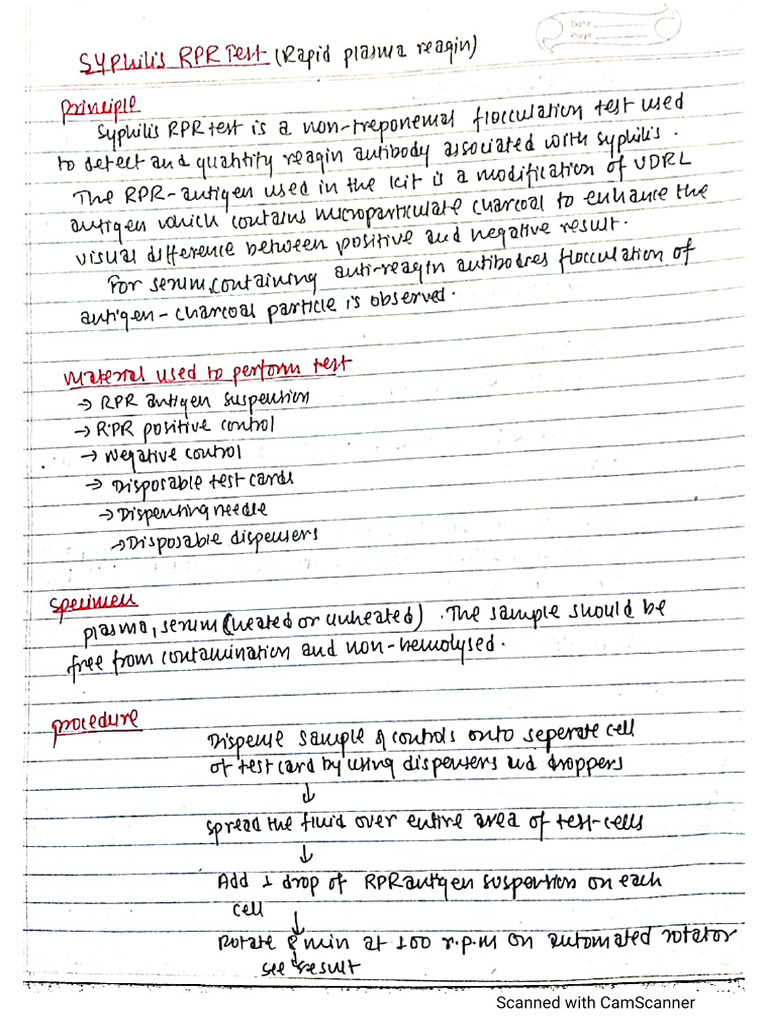 Date
Page
Syphilis RPR Test (Rapid plasma reagin)
principle
Syphilis RPR test is a non-treponemal flocculation test used
to detect and quantity reagin antibody associated with syphilis.
The RPR-antigen used in the kit is a modification of VDRL
antigen which contains microparticulate charcoal to enhance the
visual difference between positive and negative result.
For serum, containing anti-reagin antibodies flocculation of
antigen-charcoal particle is observed.
Material used to perform test
→ RPR antigen suspention
→ RPR positive control
→ Negative control
→ Disposable test cards
→ Dispenting needle
→ Disposable dispensers
Specimen
plasma, serum (heated or unheated). The sample should be
free from contamination and non-hemolysed.
procedure
Dispense sample & controls onto seperate cell
of test card by using dispensers and droppers
↓
spread the fluid over entire area of test-cells
↓
Add 1 drop of RPR antigen suspention on each
cell
↓
Rotate 8 min at 100 r.p.m on automated rotator
↓
see result
Scanned with CamScanner